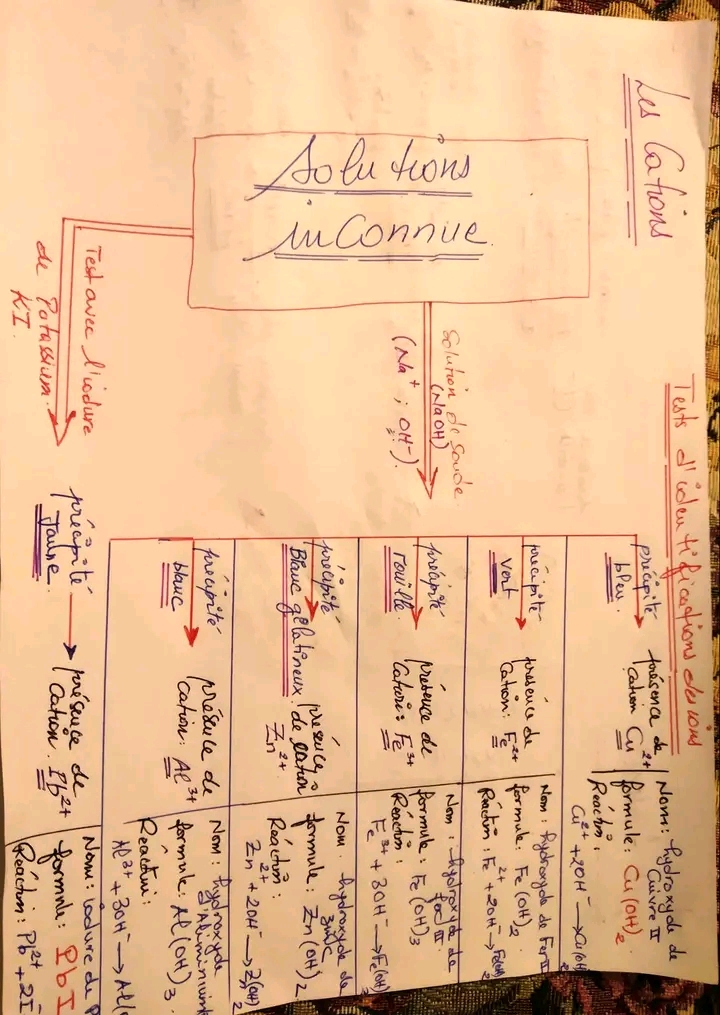 Tests d'identifications des ions
Les Cations
Solutions
inConnue
Solution de Soude
(NaOH)
(Na⁺ ; OH⁻).
précipité
bleu.
présence de
cation Cu²⁺
Nom: hydroxyde de
Cuivre II
formule: Cu(OH)₂
Réaction:
Cu²⁺ + 2OH⁻ → Cu(OH)₂
précipité
vert
présence de
Cation: Fe²⁺
Nom: hydroxyde de Fer II
formule: Fe(OH)₂
Réaction: Fe²⁺ + 2OH⁻ → Fe(OH)₂
précipité
rouille
présence de
Cation: Fe³⁺
Nom: hydroxyde de
fer III
formule: Fe(OH)₃
Réaction:
Fe³⁺ + 3OH⁻ → Fe(OH)₃
précipité
Blanc gélatineux
présence
de cation
Zn²⁺
Nom: hydroxyde de
zinc
formule: Zn(OH)₂
Réaction:
Zn²⁺ + 2OH⁻ → Z(OH)₂
précipité
blanc
présence de
cation: Al³⁺
Nom: hydroxyde
formule: Al(OH)₃.
Al³⁺ + 3OH⁻ → Al(
Test avec l'iodure
de Potassium.
KI.
précipité
Jaune
présence de
Cation. Pb²⁺
Nom: iodure de P
formule: PbI
Réaction: Pb²⁺ + 2I